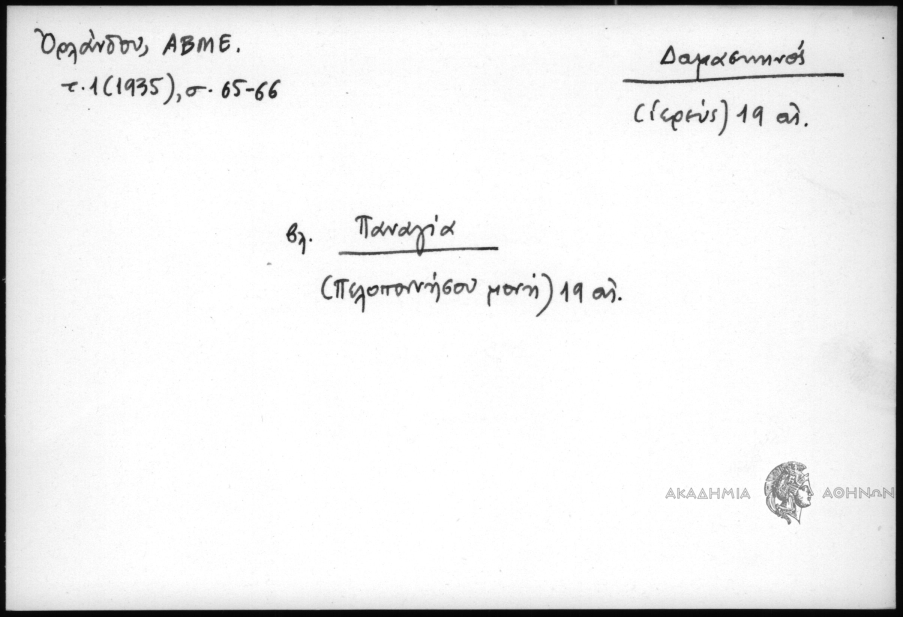 Ὀρλάνδου, ΑΒΜΕ.
τ. 1 (1935), σ. 65-66
Δαμασκηνός
(ἱερεύς) 19 αἰ.
βλ. Παναγία
(Πελοποννήσου μονή) 19 αἰ.
ΑΚΑΔΗΜΙΑ ΑΘΗΝΩΝ